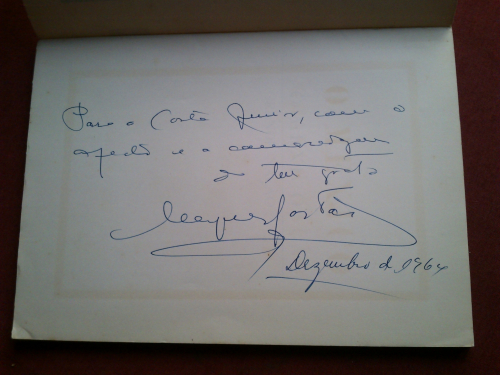 Para o Costa Junior, com o
afecto e a camaradagem
do teu grato
Dezembro de 1964